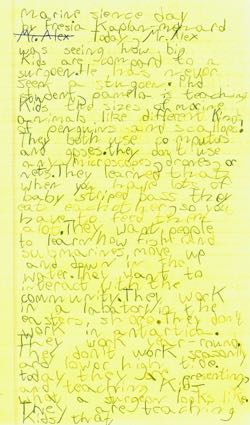 marine sience day
by Fresia Kaplan-maynard
Mr. Alex Today Mr. Alex
was seeing how big
Kids are compard to a
surgoen. He has never
seen a sturgoen. The
student pamela is teaching
Kids the sizes of marine
animals like diferent Kinds
of penguins and scallops.
They both use computus
and goses. they don't use
any microscopes, drones, or
nets. They learned that
when you have lots of
baby striped bass they
eat eachother so you
have to feed them
alot. They want people
to learn how fish and
submarines move up
and down in the
water. They want to
interact with the
community. They work
in a labatory in the
eastern shore. They don't
work in antartica.
They work year-round.
they don't work seasonly
and lower high tide.
today they are presenting
and teaching K
what a surgoen looks like.
They are teaching
Kids that